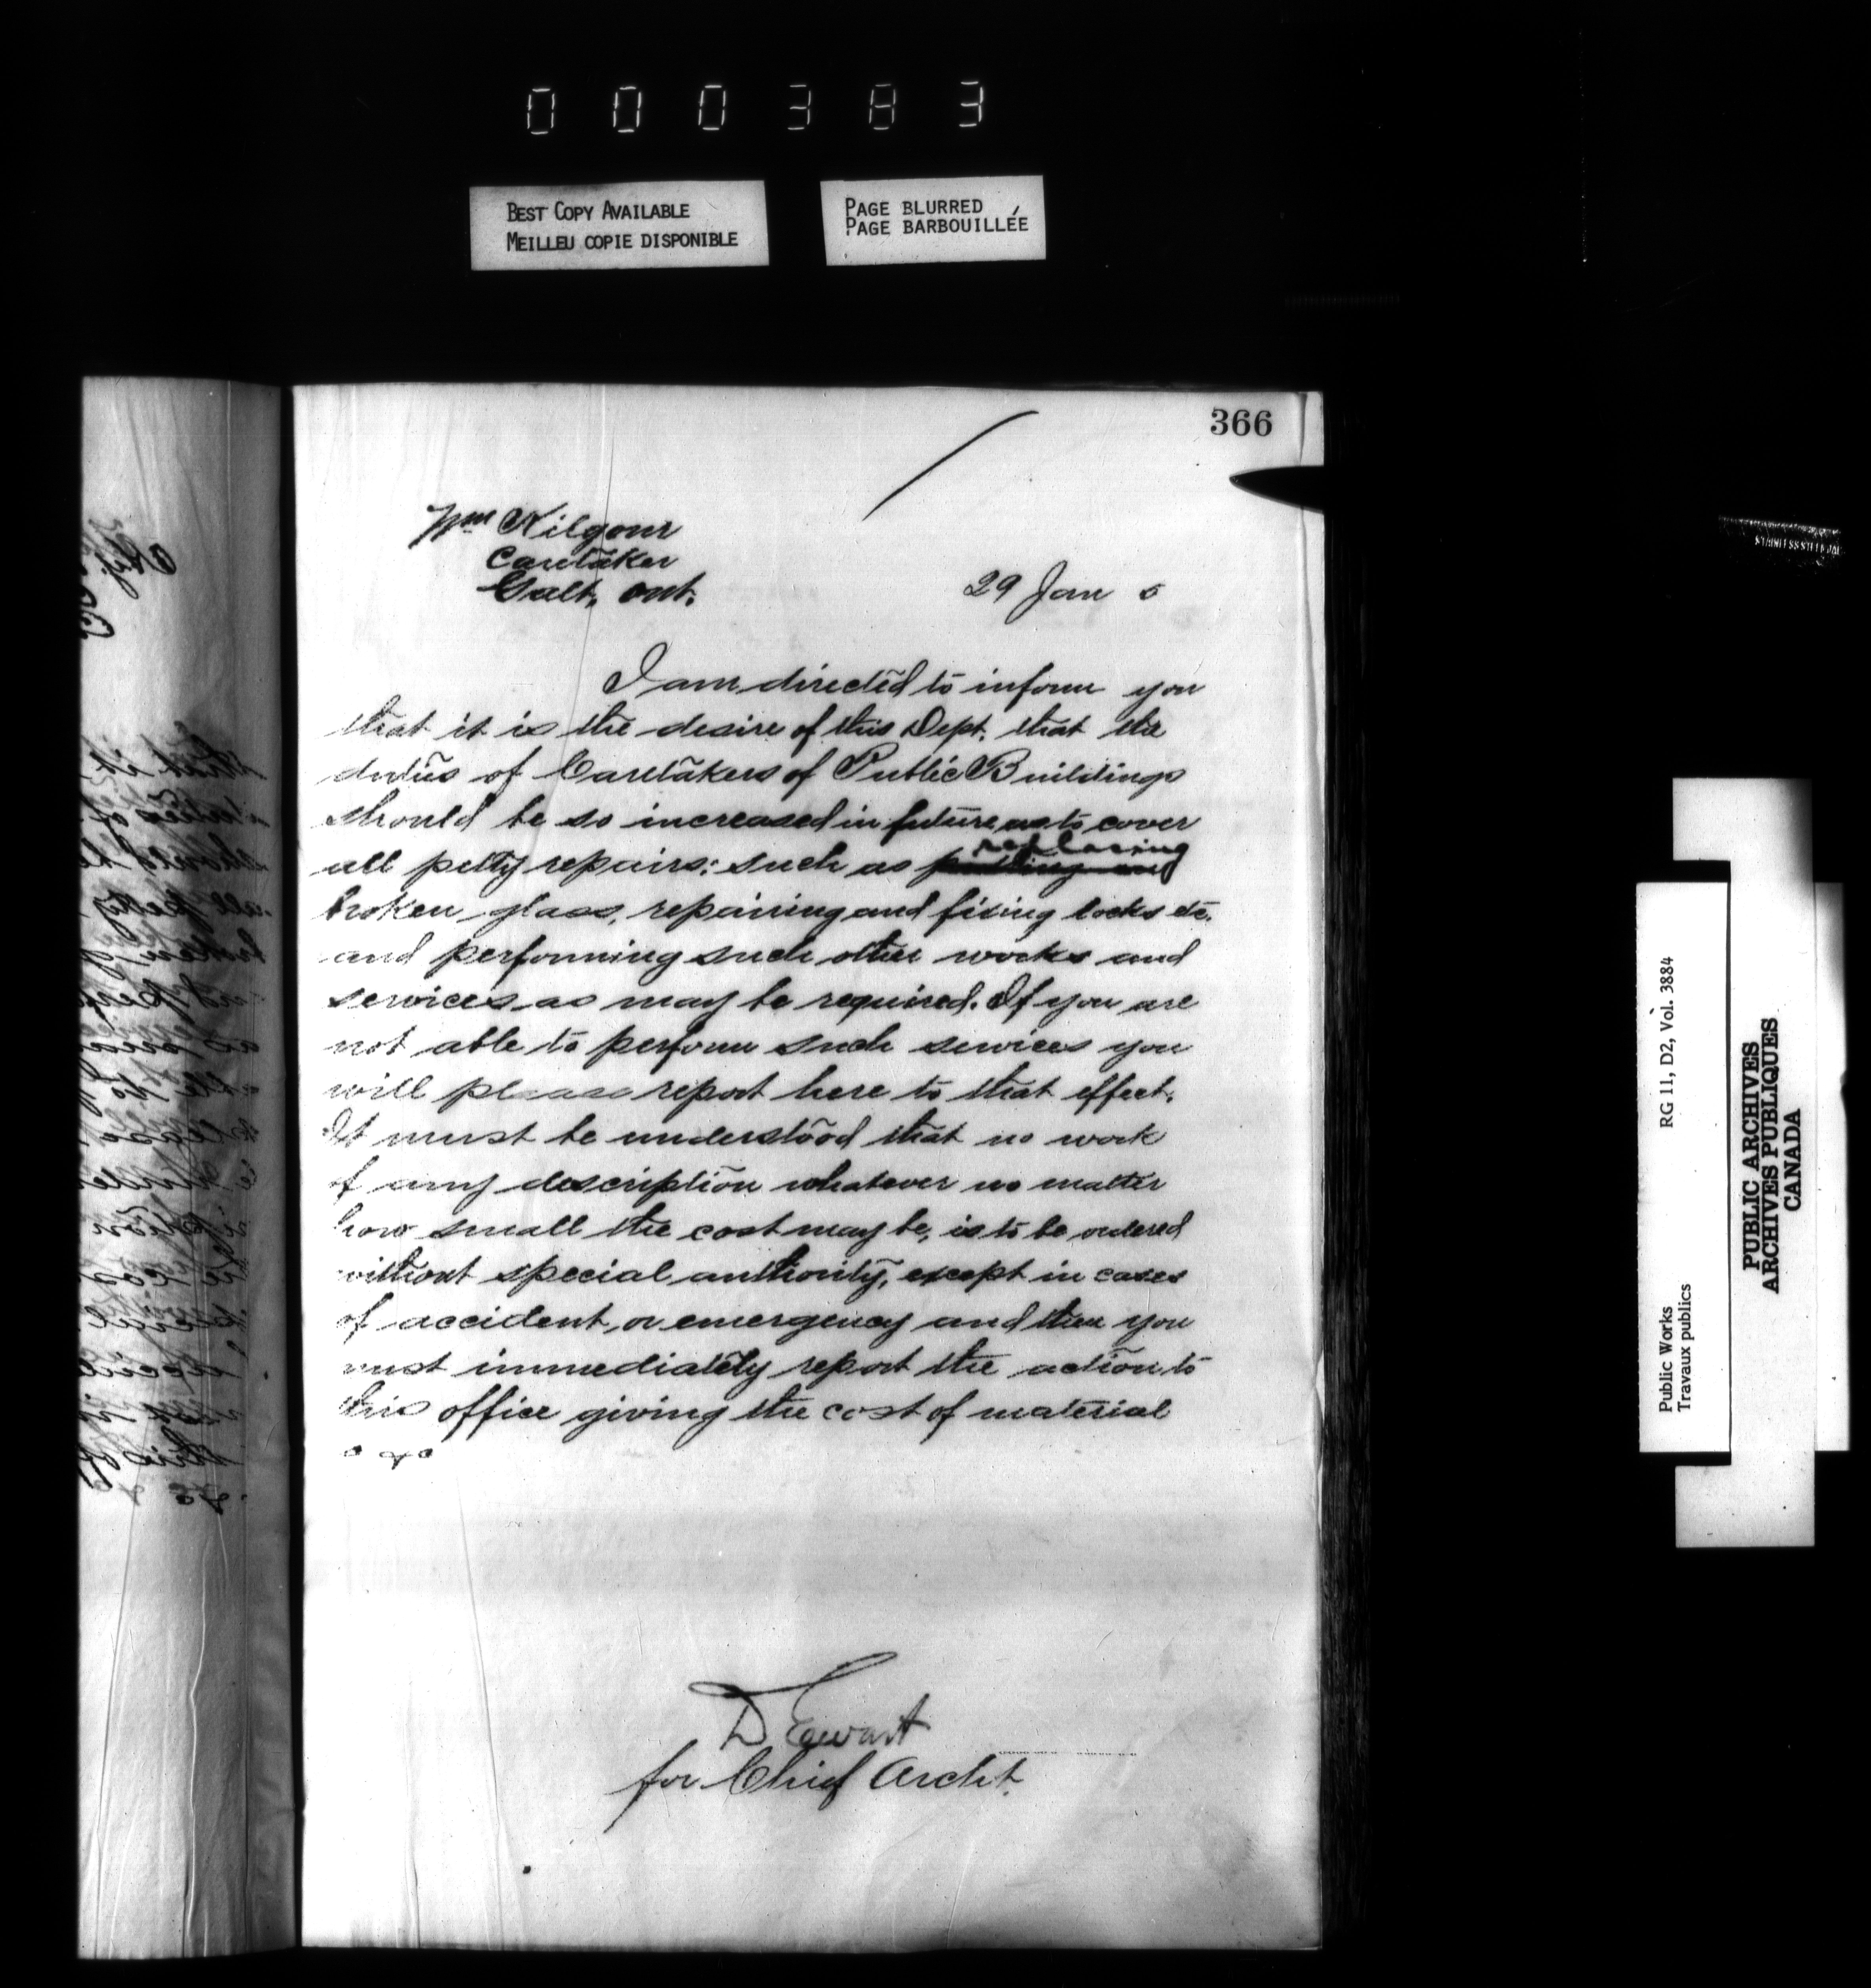 000383
BEST COPY AVAILABLE
MEILLEU COPIE DISPONIBLE
PAGE BLURRED
PAGE BARBOUILLÉE
366
Wm Kilgour
Caretaker
Galt, Ont.
29 Jan 5
I am directed to inform you
that it is the desire of this Dept. that the
duties of Caretakers of Public Buildings
should be so increased in future as to cover
all petty repairs: such as replacing
broken glass, repairing and fixing locks etc.
and performing such other works and
services as may be required. If you are
not able to perform such services you
will please report here to that effect.
It must be understood that no work
of any description whatever no matter
how small the cost may be, is to be ordered
without special authority, except in cases
of accident, or emergency and then you
must immediately report the action to
this office giving the cost of material
D Ewart
for Chief Archt.
RG 11, D2, Vol. 3884
Public Works
Travaux publics
PUBLIC ARCHIVES
ARCHIVES PUBLIQUES
CANADA